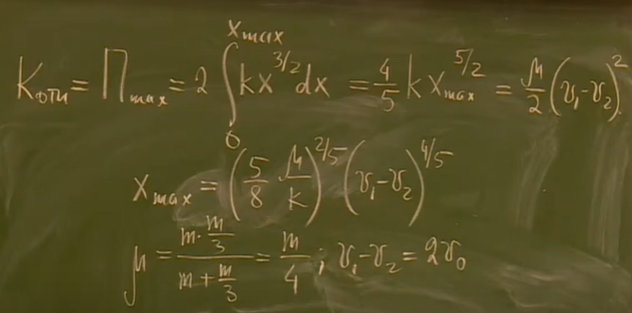 K_отн = Π_max = 2 ∫_0^{x_max} kx^{3/2} dx = 4/5 k x_max^{5/2} = μ/2 (v₁-v₂)²
x_max = (5/8 μ/k)^{2/5} (v₁-v₂)^{4/5}
μ = (m·m/3)/(m+m/3) = m/4 ; v₁-v₂ = 2v₀